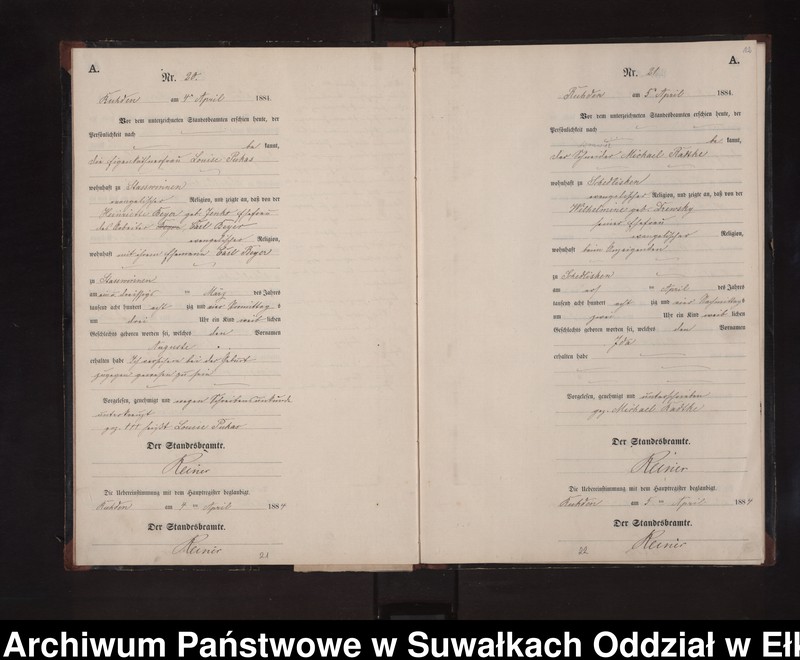 A.
Nr. 20.
am 4ten April 1884.
Vor dem unterzeichneten Standesbeamten erschien heute, der
Persönlichkeit nach
be kannt,
die Louise Pukas
wohnhaft zu Stasswinnen
evangelischer Religion, und zeigte an, daß von der
Henriette Beyer geb.
des Arbeiter Carl Beyer
evangelischer Religion,
wohnhaft mit ihrem Ehemann Carl Beyer
zu Stasswinnen
am ein dreißigst ten März des Jahres
tausend acht hundert acht zig und vier Vormittag s
um drei Uhr ein Kind weib lichen
Geschlechts geboren worden sei, welches den Vornamen
Auguste
erhalten habe bei der Geburt
zugegen gewesen zu sein
Vorgelesen, genehmigt und wegen Schreibensunkunde
unterkreuzt
gez. ††† heißt Louise Pukas
Der Standesbeamte.
Reiner
Die Uebereinstimmung mit dem Hauptregister beglaubigt.
am 4 ten April 1884
Der Standesbeamte.
Reiner
21
A.
Nr. 21.
am 5ten April 1884.
Vor dem unterzeichneten Standesbeamten erschien heute, der
Persönlichkeit nach
be kannt,
der Schneider Michael Radtke
wohnhaft zu
evangelischer Religion, und zeigte an, daß von der
Wilhelmine geb.
seiner Ehefrau
evangelischer Religion,
wohnhaft beim Anzeigenden
zu
am ten April des Jahres
tausend acht hundert acht zig und vier Nachmittag s
um zwei Uhr ein Kind weib lichen
Geschlechts geboren worden sei, welches den Vornamen
Ida
erhalten habe
Vorgelesen, genehmigt und unterschrieben
gez. Michael Radtke
Der Standesbeamte.
Reiner
Die Uebereinstimmung mit dem Hauptregister beglaubigt.
am 5 ten April 1884
Der Standesbeamte.
Reiner
22
Archiwum Państwowe w Suwałkach Oddział w Ełk